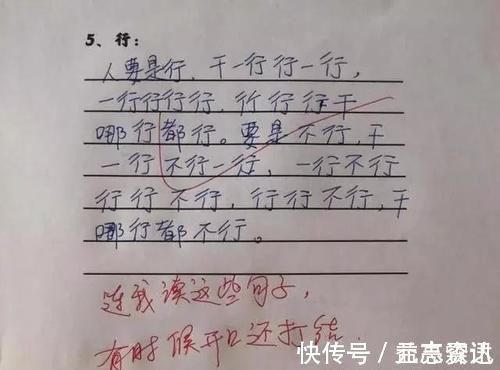 5、行：
人要是行，干一行行一行，
一行行行行，行行行干
哪行都行。要是不行，干
一行不行一行，一行不行
行行不行，行行不行，干
哪行都不行。
连我读这些句子，
有时候开口还打结.
快传号／